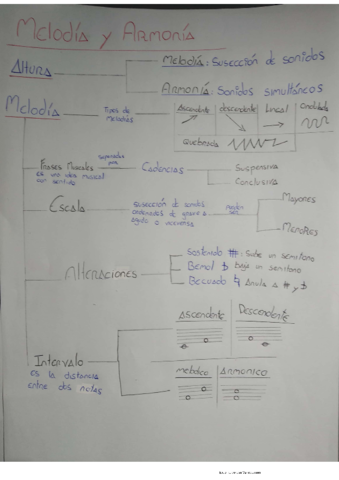 Melodía y Armonía
Altura
Melodía: Susección de sonidos
Armonía: Sonidos simultáneos
Melodía
Tipos de
Melodías
Ascendente
descendente
Lineal
Ondulada
Quebrada
Frases Musicales
es una idea musical
con sentido
separadas
por
Cadencias
Suspensiva
Conclusiva
Escala
Susección de sonidos
ordenados de grave a
agudo o viceversa
pueden
ser
Mayores
Menores
Alteraciones
Sostenido #: Sube un semitono
Bemol ♭ baja un semitono
Becuadro ♮ Anula a # y ♭
Intervalo
es la distancia
entre dos notas
Ascendente
Descendente
melódico
Armónico